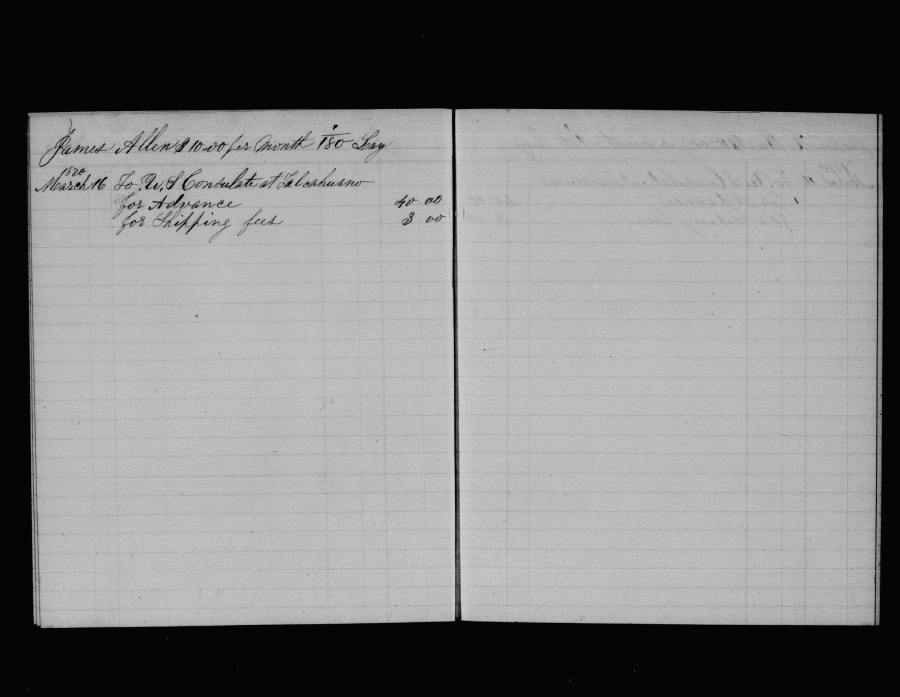 James Allen $10.00 per Month 1/180 Lay
1870
March 16 To U.S Consulate at Talcahuano
for Advance 40 00
for Shipping fees 3 00